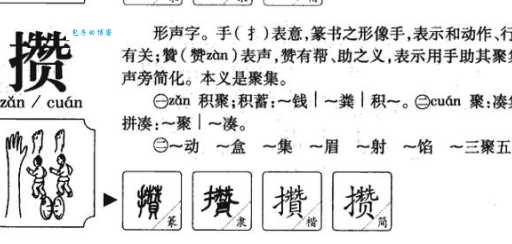 包子的博客
攒
zǎn / cuán
形声字。手(扌)表意,篆书之形像手,表示和动作、行
有关;贊(赞zàn)表声,赞有帮、助之义,表示用手助其聚集
声旁简化。本义是聚集。
㊀zǎn 积聚;积蓄:~钱|~粪|积~。㊁cuán 聚:凑集
拼凑:~聚|~凑。
㊁~动 ~盒 ~集 ~眉 ~射 ~馅 ~三聚五
攢 攢 攢 攒
篆 隶 楷 简